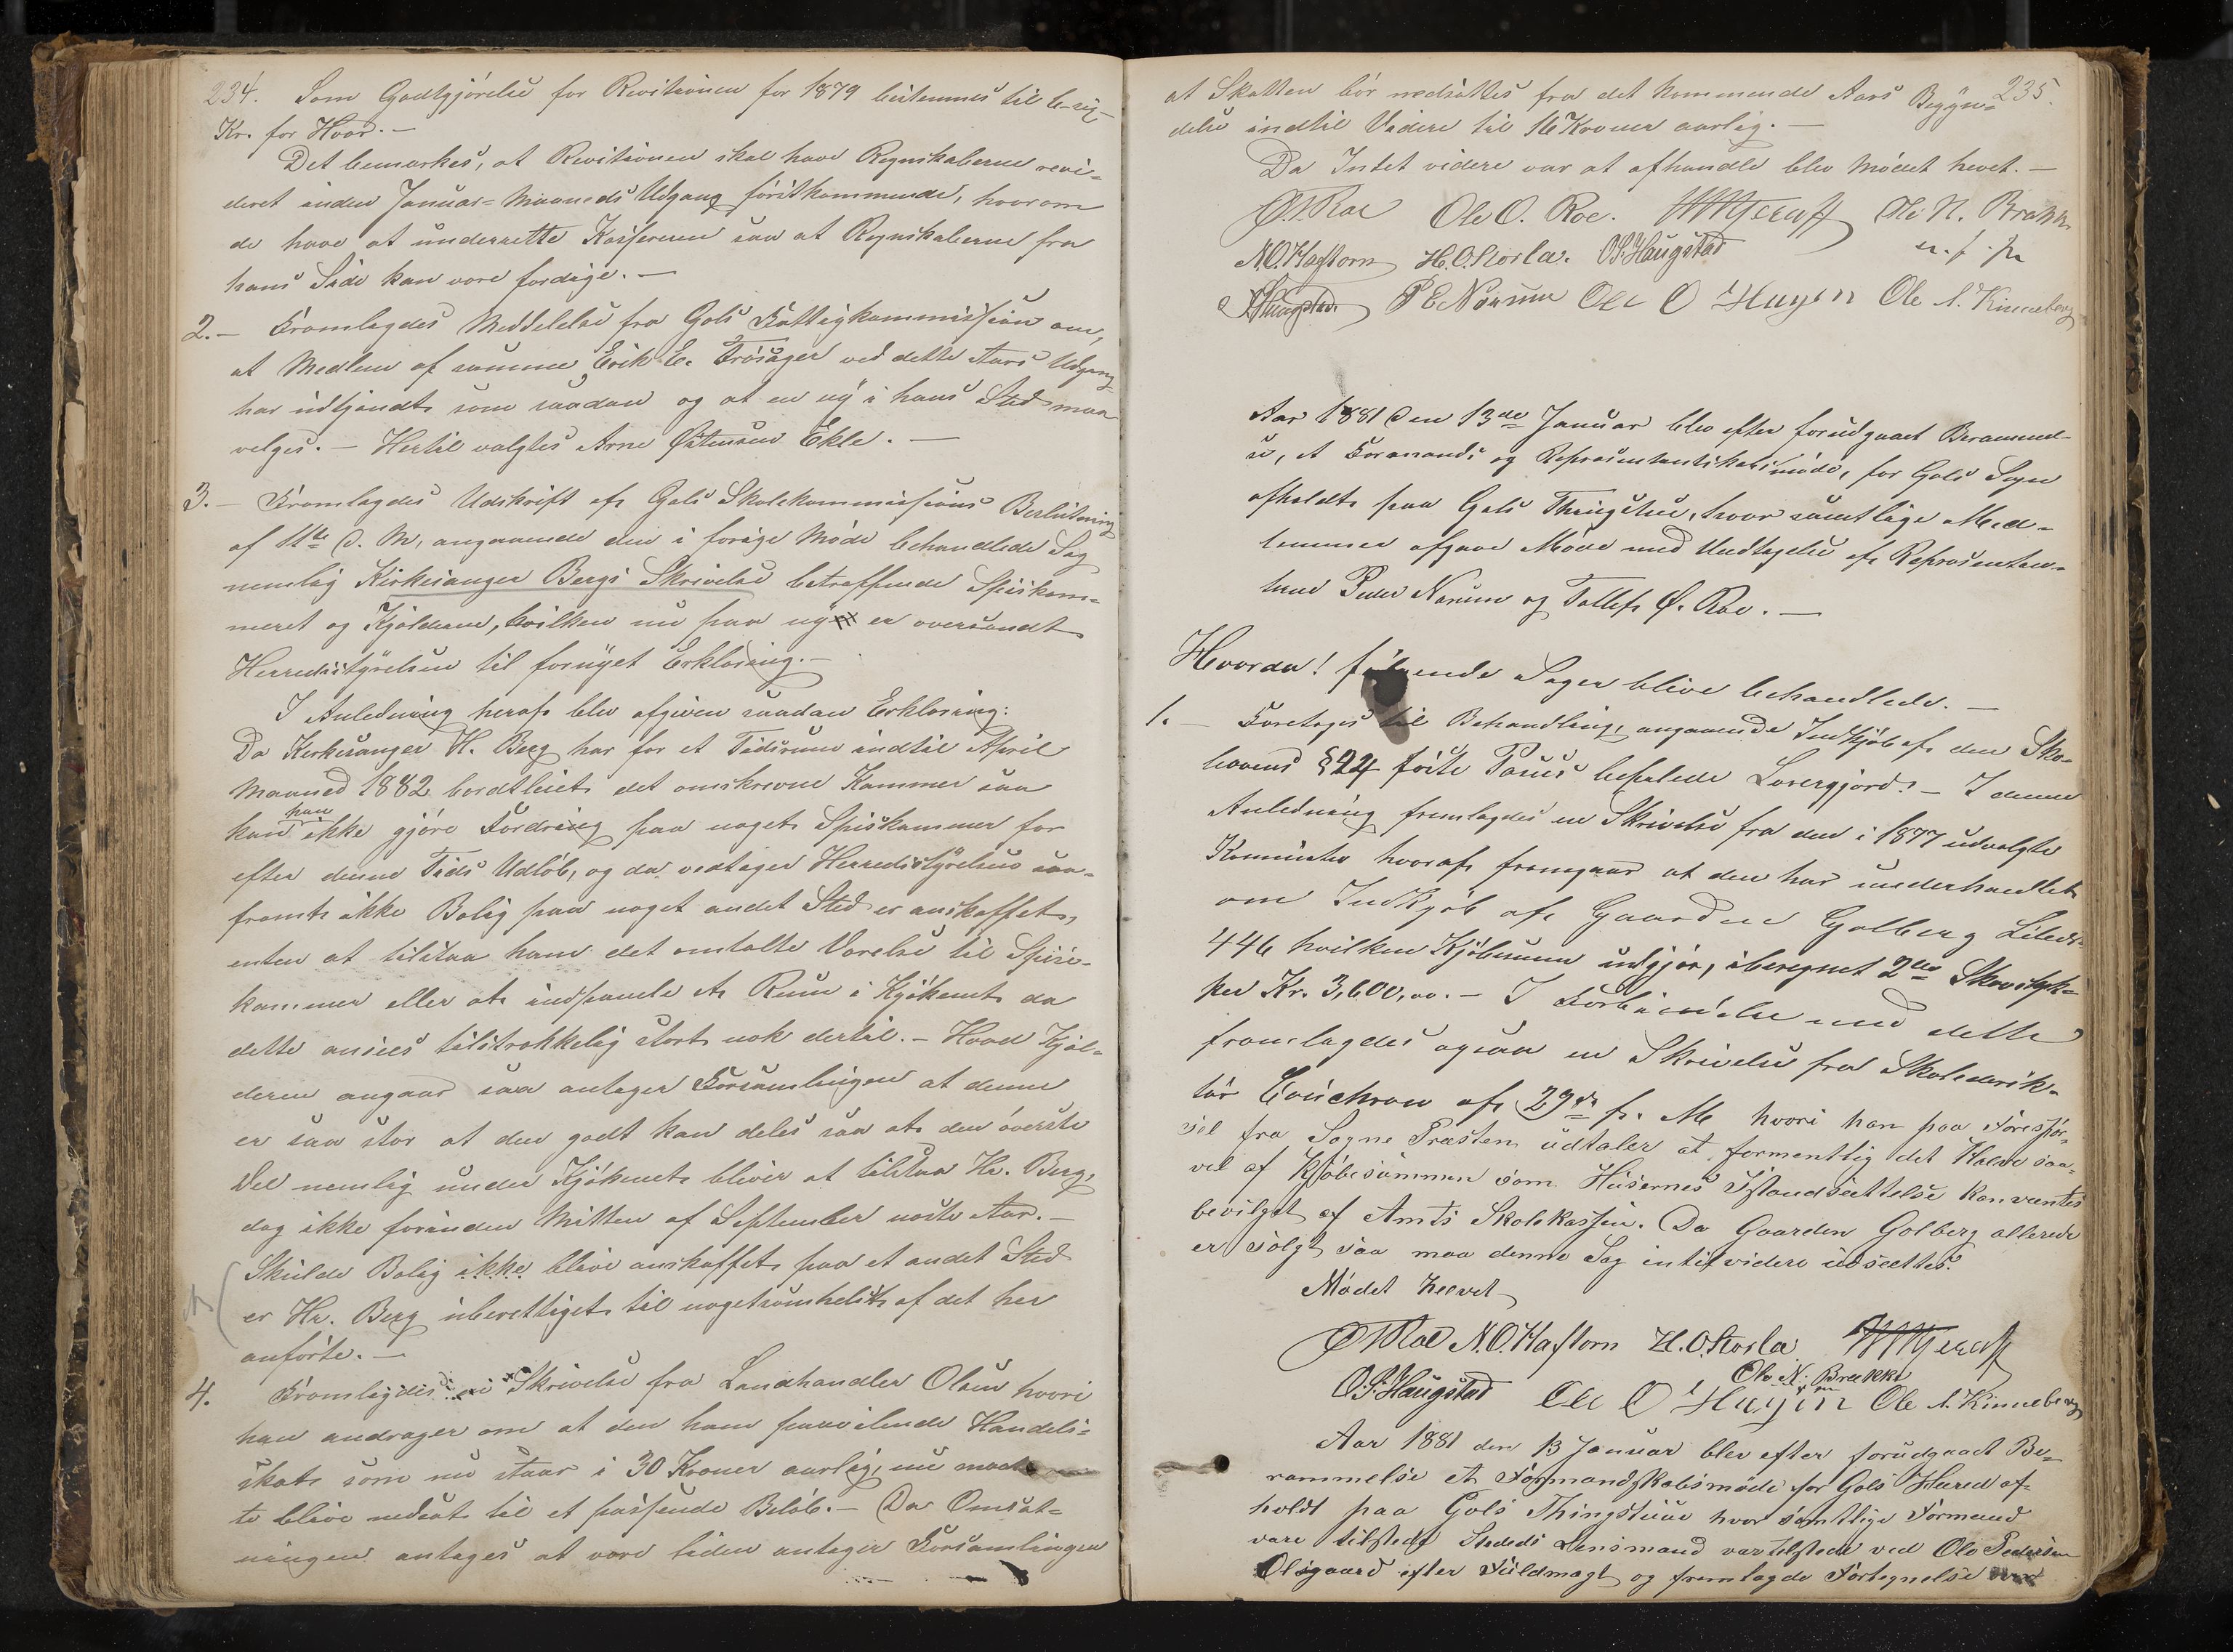 234.
Som Godtgjórelse for Revisionen for 1879 bestemmes til
Kr. for Hver. —
Det bemærkes, at Revisionen skal have Regnskaberne revi-
deret inden Januar-Maaneds Udgang förstkommende, hvorom
de have at underrette Kassereren saa at Regnskaberne fra
hans Side kan være færdige. —
2. — Fremlagdes Meddelelse fra Gols Fattigkommission om,
at Medlem af samme, Erik E. Trösager ved dette Aars Udgang
har udtjændt som saadan og at en ny i hans Sted maa
velges. — Hertil valgtes Arne Östensen Ekle. —
3. — Fremlagdes Udskrift af Gols Skolekommissions Beslutning
af 11te d. M, angaaende den i forige Möde behandlede Sag
nemlig Kirkesanger Bergs Skrivelse betræffende Spiskam-
meret og Kjælderen, hvilken nu paa ny er oversendt
Herredsstyrelsen til fornyet Erklæring. —
I Anledning heraf blev afgiven saadan Erklæring:
Da Kirkesanger H. Berg har for et Tidsrum indtil April
Maaned 1882 bordtleiet det omskrevne Kammer saa
kan han ikke gjöre Fordring paa noget Spiskammer for
efter denne Tids Udlöb, og da vedtager Herredsstyrelsen saa-
fremt ikke Bolig paa noget andet Sted er anskaffet,
enten at tilstaa ham det omtalte Værelse til Spise-
kammer eller at indpanele et Rum i Kjökenet da
dette ansees tilstrækkelig stort nok dertil. — Hvad Kjæl-
deren angaar saa antager Forsamlingen at denne
er saa stor at den godt kan deles saa at den överste
Del nemlig under Kjökenet bliver at tilstaa Hr. Berg,
dog ikke forinden Midten af September næste Aar. —
Skulde Bolig ikke blive anskaffet paa et andet Sted
er Hr. Berg uberettiget til nogetsomhelst af det her
anförte. —
4. Fremlagdes Skrivelse fra Landhandler Olsen hvori
han andrager om at den ham paahvilende Handels-
skat som nu staar i 30 Kroner aarlig, nu maat-
te blive nedsat til et passende Belöb. — Da Omsæt-
ningen antages at være liden antager Forsamlingen
235.
at Skatten bör nedsættes fra det kommende Aars Begyn-
delse indtil Videre til 16 Kroner aarlig. —
Da Intet videre var at afhandle blev Mödet hevet. —
Ole O. Roe. Ole N. Brakke
N. O. Haftorn H. O. Storla. O. S. Haugstad m. f. p.
P E Narum Ole O Haugen Ole A. Kinneberg
Aar 1881 den 13de Januar blev efter forudgaaet Berammel-
se, et Formands og Representantskabsmöde, for Gols Sogn
afholdt paa Gols Thingstue, hvor samtlige Med-
lemmer afgave Möde med Undtagelse af Representan-
terne Peder Narum og Tollef Ö. Roe. —
Hvorda! følgende Sager blive behandlede. —
1. — Foretoges til Behandling, angaaende Indkjöb af den Sko-
lelovens § 24 förste Passus befalede Lærergjord. — I denne
Anledning fremlagdes en Skrivelse fra den i 1877 udvalgte
Komite hvoraf fremgaar at den har underhandlet
om Indkjöb af Gaarden Golberg Löbens
446 hvilken Kjöbesum udgjör, iberegnet 2de Skovstyk-
ker Kr. 3,600,00. — I Forbindelse med dette
fremlagdes ogsaa en Skrivelse fra Skoledirek-
tör af 29de f. M hvori han paa Forespör-
sel fra Sogne Præsten udtaler at formentlig det Halve saa-
vel af Kjöbesummen som Husernes Istandsættelse kan ventes
bevilget af Amts Skolekassen. Da Gaarden Golberg allerede
er solgt saa maa denne Sag intil videre udsættes.
Mödet hevet
N. O. Haftorn H. O. Storla
Ole N. Brakke
O. S. Haugstad Ole O Haugen Ole A. Kinneberg
Aar 1881 den 13 Januar blev efter forudgaaet Be-
rammelse et Formandskabsmöde for Gols Herred af-
holdt paa Gols Thingstue hvor samtlige Formænd
vare tilstede Stedets Lensmand var tilstede ved Ole Pedersen
Olsgaard efter Fuldmagt og fremlagde Fortegnelse over